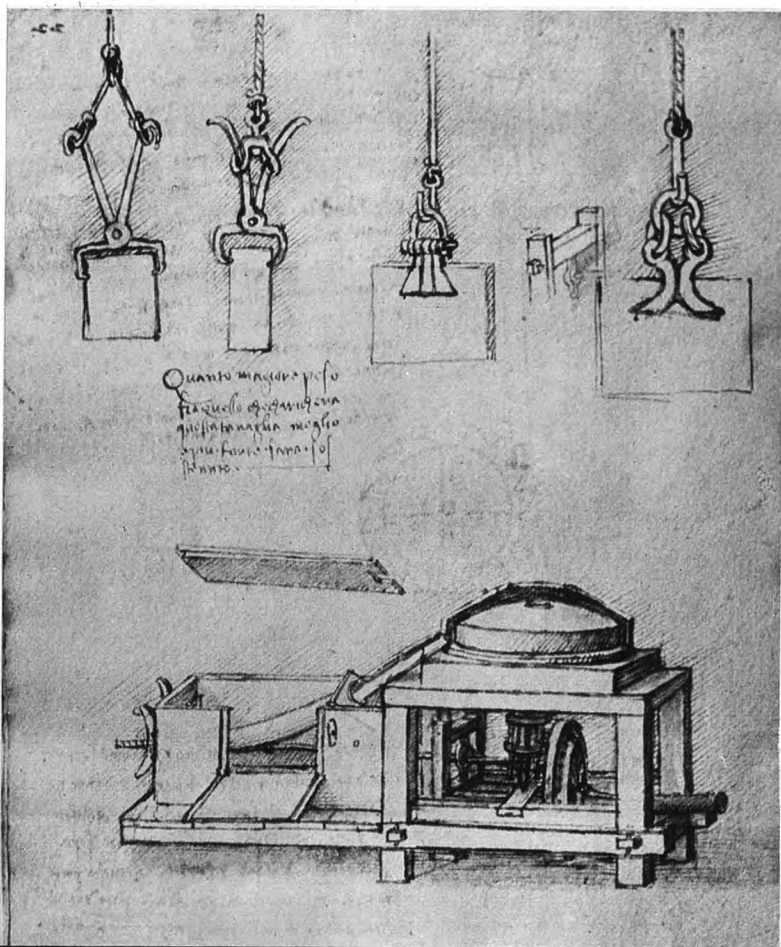 Quanto magiore peso
fia quello che charichera
questa tanaglia meglio
e piu forte fara sos
tenuto.